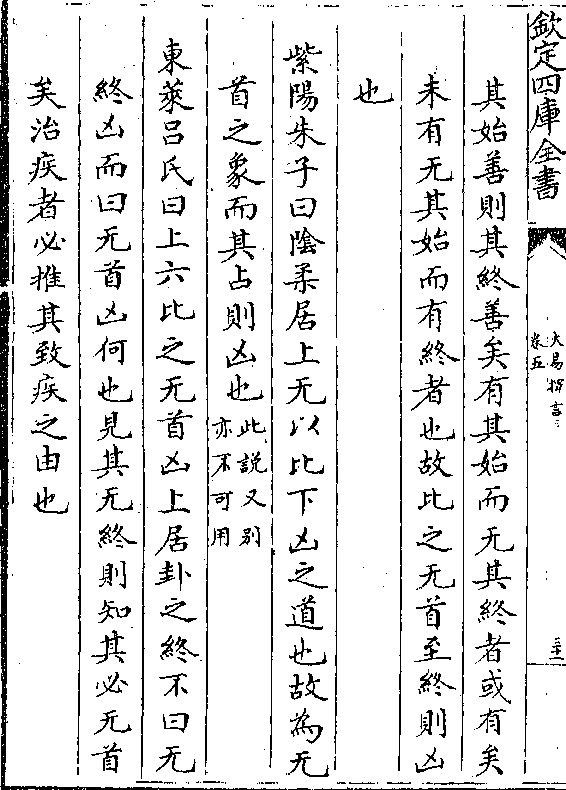 欽定四庫全書
大易擇言
卷五
三十一
其始善則其終善矣有其始而无其終者或有矣
未有无其始而有終者也故比之无首至終則凶
也
紫陽朱子曰陰柔居上无以比下凶之道也故為无
首之象而其占則凶也此說又別
亦不可用
東萊呂氏曰上六比之无首凶上居卦之終不曰无
終凶而曰无首凶何也見其无終則知其必无首
矣治疾者必推其致疾之由也